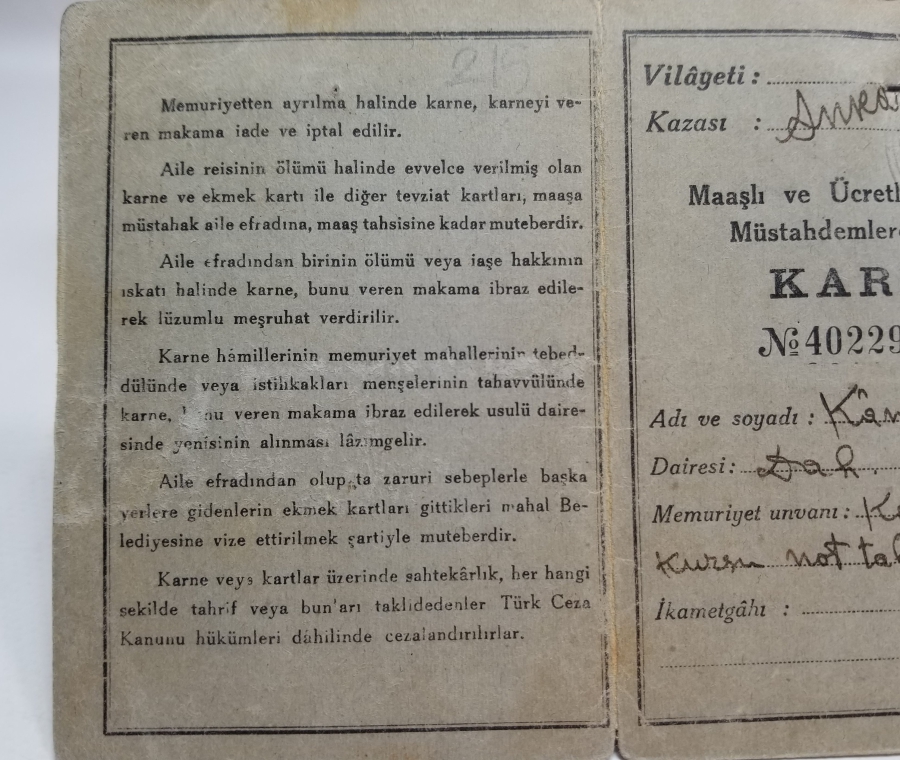 215
Memuriyetten ayrılma halinde karne, karneyi ve-
ren makama iade ve iptal edilir.
Aile reisinin ölümü halinde evvelce verilmiş olan
karne ve ekmek kartı ile diğer tevziat kartları, maaşa
müstahak aile efradına, maaş tahsisine kadar muteberdir.
Aile efradından birinin ölümü veya iaşe hakkının
ıskatı halinde karne, bunu veren makama ibraz edile-
rek lüzumlu meşruhat verdirilir.
Karne hâmillerinin memuriyet mahallerinin tebed-
dülünde veya istihkakları menşelerinin tahavvülünde
karne, bunu veren makama ibraz edilerek usulü daire-
sinde yenisinin alınması lâzımgelir.
Aile efradından olup ta zaruri sebeplerle başka
yerlere gidenlerin ekmek kartları gittikleri mahal Be-
lediyesine vize ettirilmek şartiyle muteberdir.
Karne veya kartlar üzerinde sahtekârlık, her hangi
şekilde tahrif veya bun'arı taklidedenler Türk Ceza
Kanunu hükümleri dâhilinde cezalandırılırlar.
Vilâyeti :
Kazası : Anka
Maaşlı ve Ücretl
Müstahdemler
KAR
№ 40229
Adı ve soyadı : Kâm
Dairesi : Dah.
Memuriyet unvanı :
Kursu not
İkametgâhı :